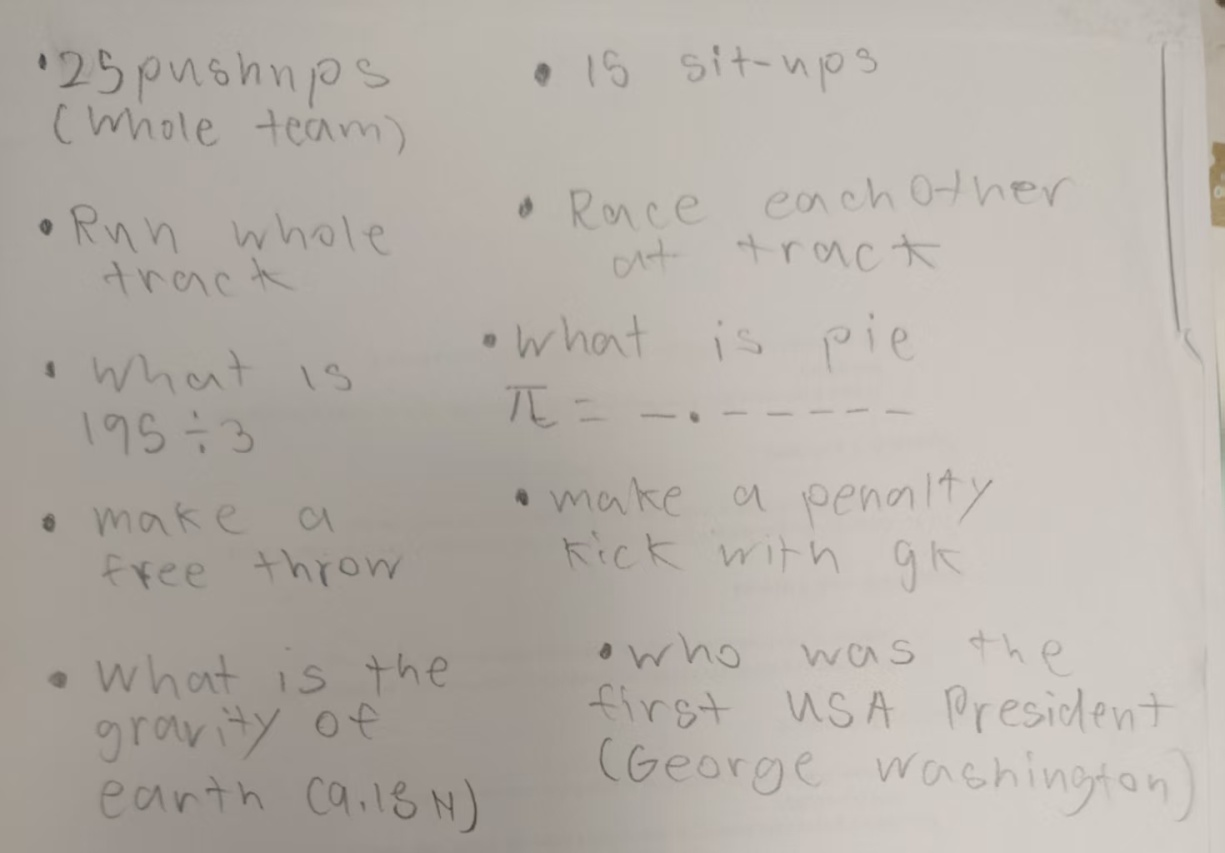 • 25 pushups
(Whole team)
• Run whole
track
• What is
195 ÷ 3
• make a
free throw
• What is the
gravity of
earth (9.18 N)
• 15 sit-ups
• Race each Other
at track
• What is pie
π = _._ _ _ _ _ _
• make a penalty
kick with gk
• who was the
first USA President
(George Washington)